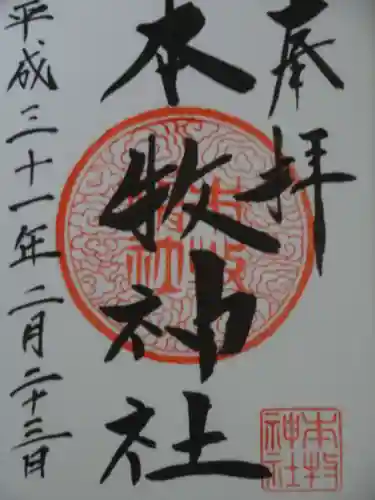 奉拝
本牧神社
平成三十一年二月二十三日
本牧
神社
本牧
神社